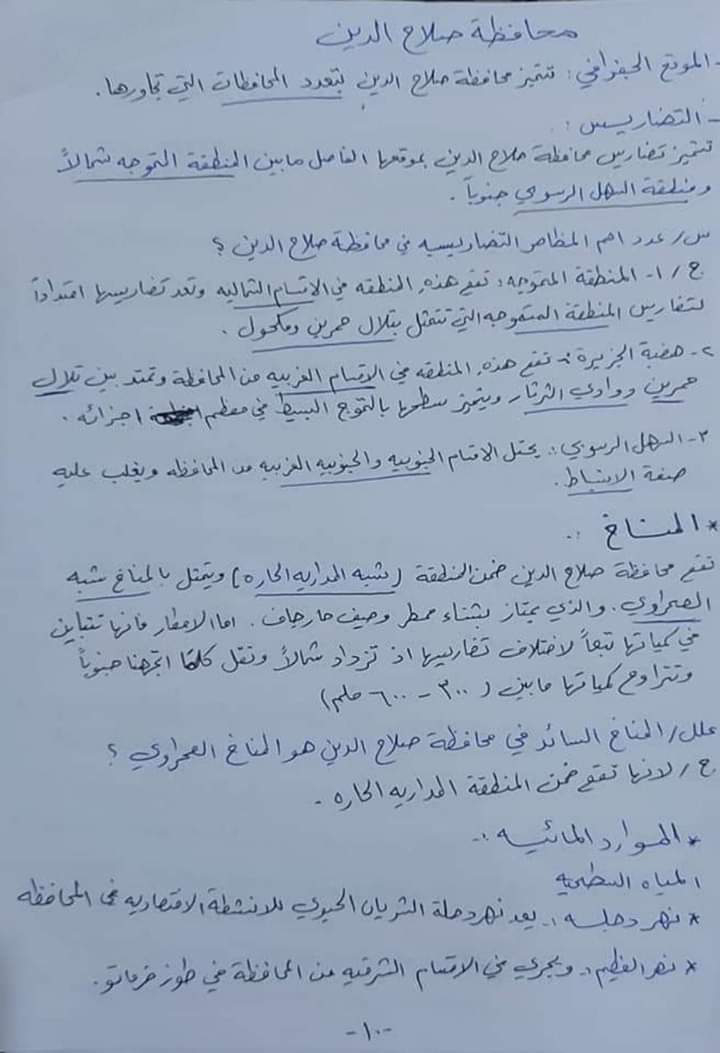 محافظة صلاح الدين
- الموقع الجغرافي: تتميز محافظة صلاح الدين بتعدد المحافظات التي تجاورها.
- التضاريس:
تتميز تضاريس محافظة صلاح الدين بموقعها الفاصل مابين المنطقة المتوجه شمالاً
ومنطقة السهل الرسوبي جنوباً.
س/ عدد اهم المظاهر التضاريسيه في محافظة صلاح الدين ؟
ج/ ١- المنطقة المتموجه: تقع هذه المنطقه في الاقسام الشماليه وتعد تضاريسها امتداداً
لتضاريس المنطقة المتموجه التي تتمثل بتلال حمرين ومكحول.
٢- هضبة الجزيرة: تقع هذه المنطقه في الاقسام الغربيه من المحافظة وتمتد بين تلال
حمرين ووادي الثرثار ويتميز سطحها بالتموج البسيط في معظم اجزائه.
٣- السهل الرسوبي: يحتل الاقسام الجنوبيه والجنوبيه الغربيه من المحافظه ويغلب عليه
صفة الانبساط.
* المناخ :.
تقع محافظة صلاح الدين ضمن المنطقة (شبه المداريه الحاره) ويتمثل بالمناخ شبه
الصحراوي. والذي يمتاز بشتاء ممطر وصيف حار جاف. اما الامطار فانها تتباين
في كمياتها تبعاً لاختلاف تضاريسها اذ تزداد شمالاً وتقل كلما اتجهنا جنوباً
وتتراوح كمياتها مابين (٣٠٠ - ٦٠٠ ملم)
علل/ المناخ السائد في محافظة صلاح الدين هو المناخ الصحراوي ؟
ج/ لانها تقع ضمن المنطقة المداريه الحاره.
* الموارد المائيه :-
المياه السطحيه
* نهر دجله :. يعد نهر دجلة الشريان الحيوي للانشطة الاقتصاديه في المحافظه
* نهر العظيم :. ويجري في الاقسام الشرقيه من المحافظة في طوز خرماتو.
-١٠-